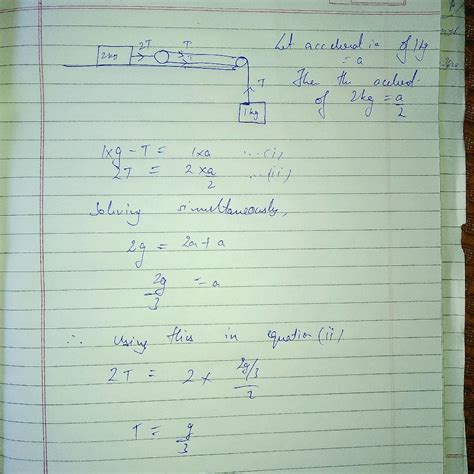 2kg 2T T T
1kg
Let accelerd is of 1kg
= a
Then the acclerd.
of 2kg = a/2
1×g - T = 1×a ...(i)
2T = 2×a/2 ...(ii)
Solving simultaneously,
2g = 2a + a
2g/3 = a
∴ Using this in equation (ii)
2T = 2 × 2g/3/2
T = g/3